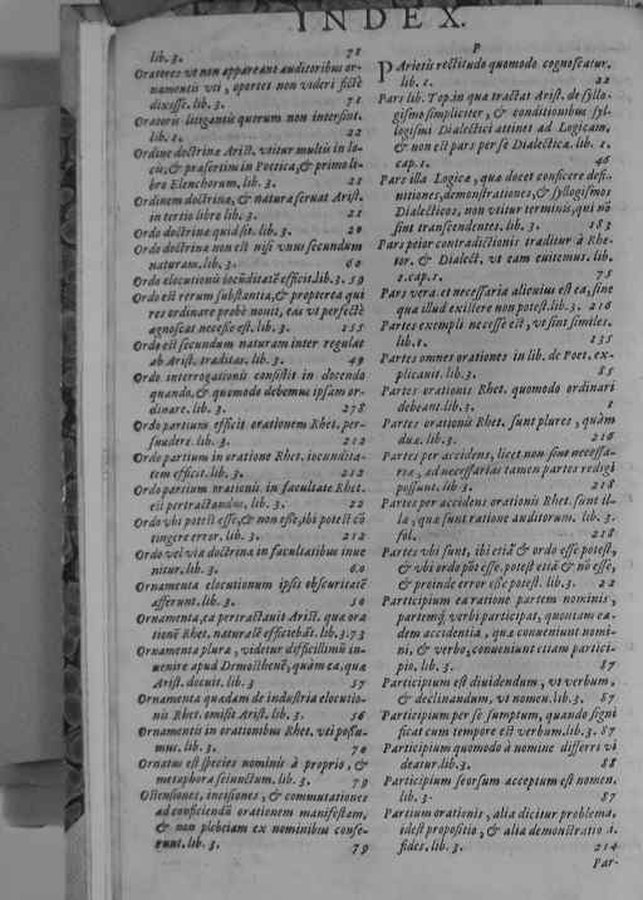 INDEX.
lib. 3. 71
Oratores vt non appareant auditoribus or-
namentis vti, oportet non videri ficte
dixisse. lib. 3. 71
Oratoris litigantis quorum non intersint.
lib. 1. 22
Ordine doctrinæ Arist. vtitur multis in lo-
cis, & præsertim in Poetica, & primo li-
bro Elenchorum, lib. 3. 21
Ordinem doctrinæ, & naturæ seruat Arist.
in tertio libro lib. 3. 21
Ordo doctrinæ quid sit. lib. 3. 20
Ordo doctrinæ non est nisi vnus secundum
naturam. lib. 3. 60
Ordo elocutionis iocũditatẽ efficit.lib.3. 59
Ordo est rerum substantia, & propterea qui
res ordinare probè nouit, eas vt perfectè
agnoscat necesse est. lib. 3. 155
Ordo est secundum naturam inter regulas
ab Arist. traditas. lib. 3. 49
Ordo interrogationis consistit in docendo
quando, & quomodo debemus ipsam or-
dinare. lib. 3. 278
Ordo partium efficit orationem Rhet. per-
suadere. lib. 3. 212
Ordo partium in oratione Rhet. iocundita-
tem efficit. lib. 3. 212
Ordo partium orationis in facultate Rhet.
est pertractandus, lib. 3. 22
Ordo vbi potest esse, & non esse, ibi potest cõ
tingere error. lib. 3. 212
Ordo vel via doctrina in facultatibus inue
nitur. lib. 3. 60
Ornamenta elocutionum ipsis obscuritatẽ
afferunt. lib. 3. 56
Ornamenta, ea pertractauit Arist. quæ ora
tionẽ Rhet. naturalẽ efficiebãt. lib.3.73
Ornamenta plura, videtur difficillimũ in-
uenire apud Demosthenẽ, quàm ea, quæ
Arist. docuit. lib. 3 57
Ornamenta quædam de industria elocutio-
nis Rhet. omisit Arist. lib. 3. 56
Ornamentis in orationibus Rhet. vti possu-
mus. lib. 3. 70
Ornatus est species nominis à proprio, &
metaphora seiunctum. lib. 3. 79
Ostensiones, incisiones, & commutationes
ad conficiendũ orationem manifestam,
& non plebeiam ex nominibus confe-
runt. lib. 3. 79
P
PArietis rectitudo quomodo cognoscatur.
lib. 1. 22
Pars lib. Top. in qua tractat Arist. de syllo-
gismo simpliciter, & conditionibus syl-
logismi Dialectici attinet ad Logicam,
& non est pars per se Dialecticæ. lib. 1.
cap. 1. 46
Pars illa Logicæ, quæ docet conficere defi-
nitiones, demonstrationes, & syllogismos
Dialecticos, non vtitur terminis, qui nõ
sint transcendentes. lib. 3. 183
Pars peior contradictionis traditur à Rhe-
tor. & Dialect. vt eam euitemus. lib.
1. cap. 1. 75
Pars vera et necessaria alicuius est ea, sine
qua illud existere non potest. lib. 3. 216
Partes exempli necesse est, vt sint similes.
lib. 1. 135
Partes omnes orationes in lib. de Poet. ex-
plicauit. lib. 3. 85
Partes orationis Rhet. quomodo ordinari
debeant. lib. 3. 1
Partes orationis Rhet. sunt plures, quàm
duæ. lib. 3. 216
Partes per accidens, licet non sint necessa-
riæ, ad necessarias tamen partes redigi
possunt. lib. 3. 218
Partes per accidens orationis Rhet. sunt il-
læ, quæ sunt ratione auditorum. lib. 3.
fol. 218
Partes vbi sunt, ibi etiã & ordo esse potest,
& vbi ordo põt esse, potest etiã & nõ esse,
& proinde error esse potest. lib. 3. 22
Participium ea ratione partem nominis,
partemq́; verbi participat, quoniam ea-
dem accidentia, quæ conueniunt nomi-
ni, & verbo, conueniunt etiam partici-
pio, lib. 3. 87
Participium est diuidendum, vt verbum,
& declinandum, vt nomen. lib. 3. 87
Participium per se sumptum, quando signi
ficat cum tempore est verbum. lib. 3. 87
Participium quomodo à nomine differri vi
deatur. lib. 3. 88
Participium seorsum acceptum est nomen.
lib. 3. 87
Partium orationis, alia dicitur problema,
idest propositio, & alia demonstratio i.
fides. lib. 3. 214
Par-